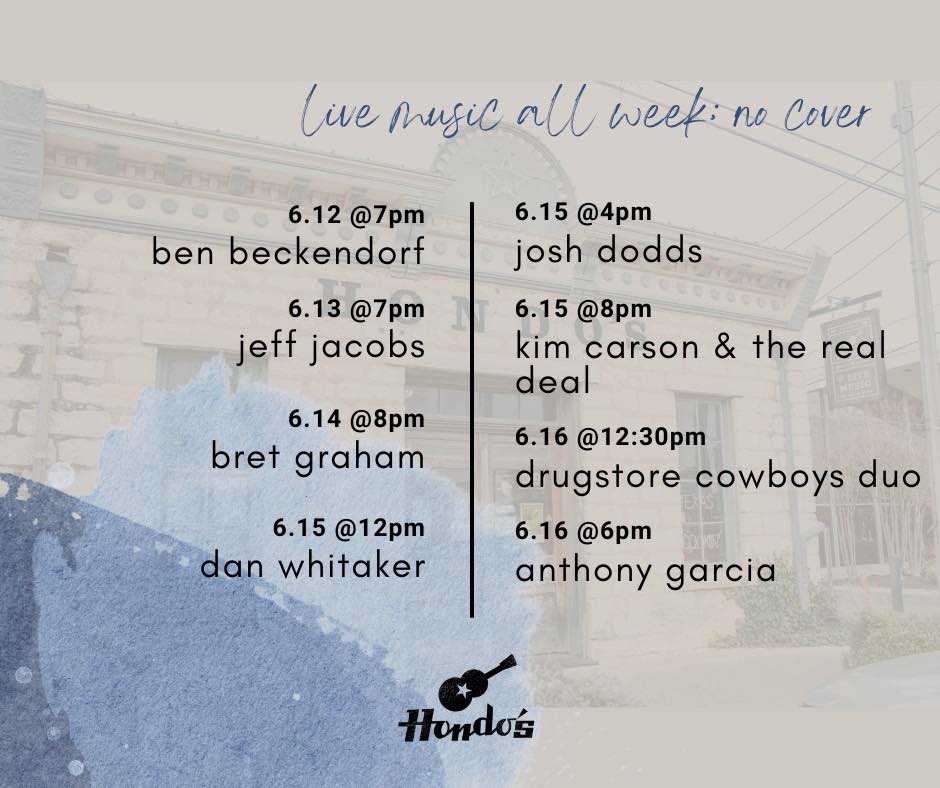 live music all week: no cover
6.12 @7pm
ben beckendorf
6.13 @7pm
jeff jacobs
6.14 @8pm
bret graham
6.15 @12pm
dan whitaker
6.15 @4pm
josh dodds
6.15 @8pm
kim carson & the real
deal
6.16 @12:30pm
drugstore cowboys duo
6.16 @6pm
anthony garcia
HONDO'S
Hondo's